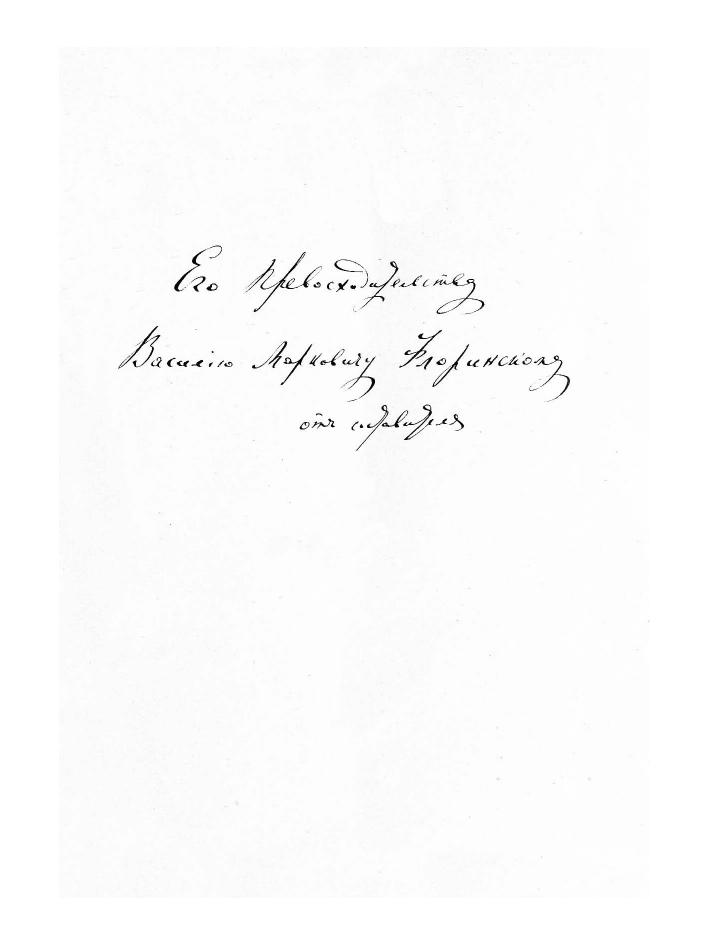 Его Превосходительству
Василію Марковичу Флоринскому
отъ составителя